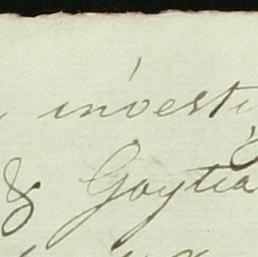 investi
& Goytia